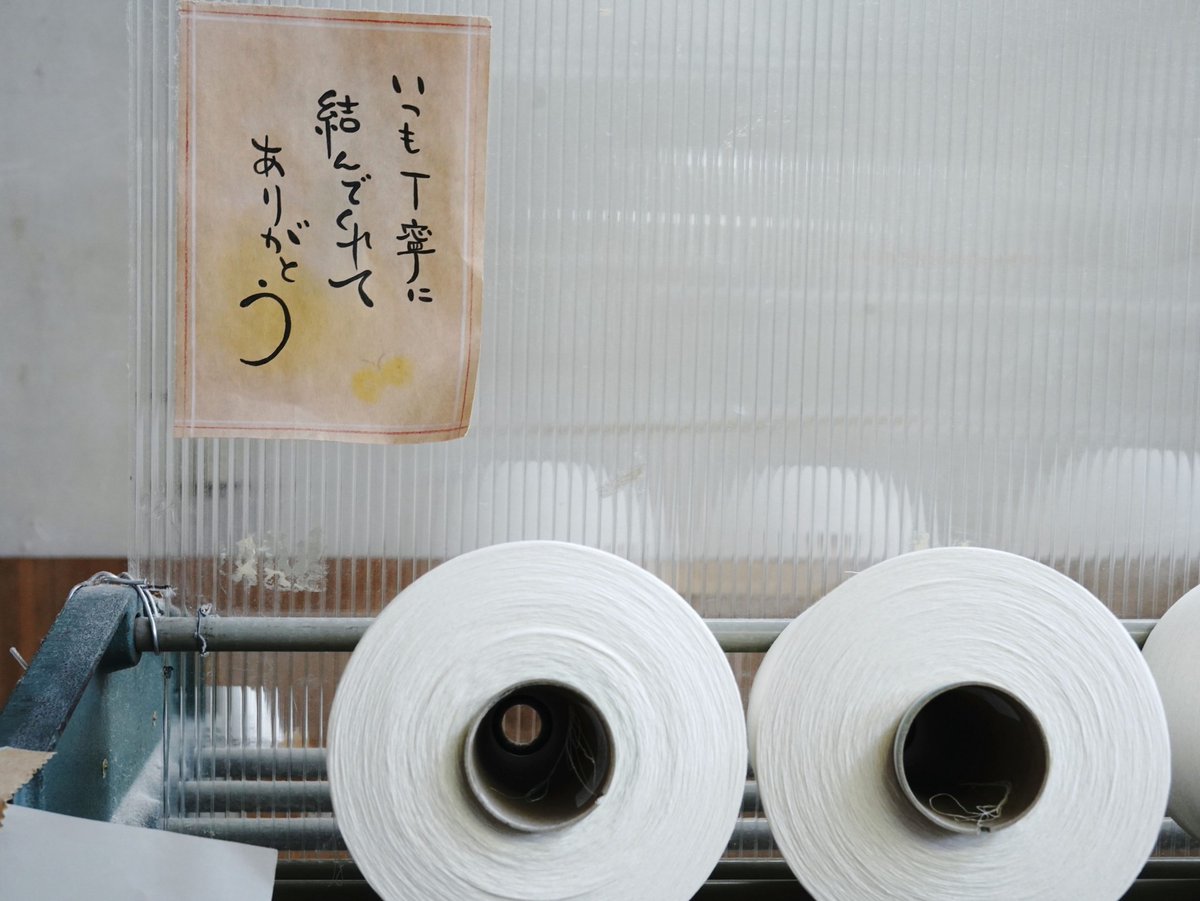 いつも丁寧に
結んでくれて
ありがとう